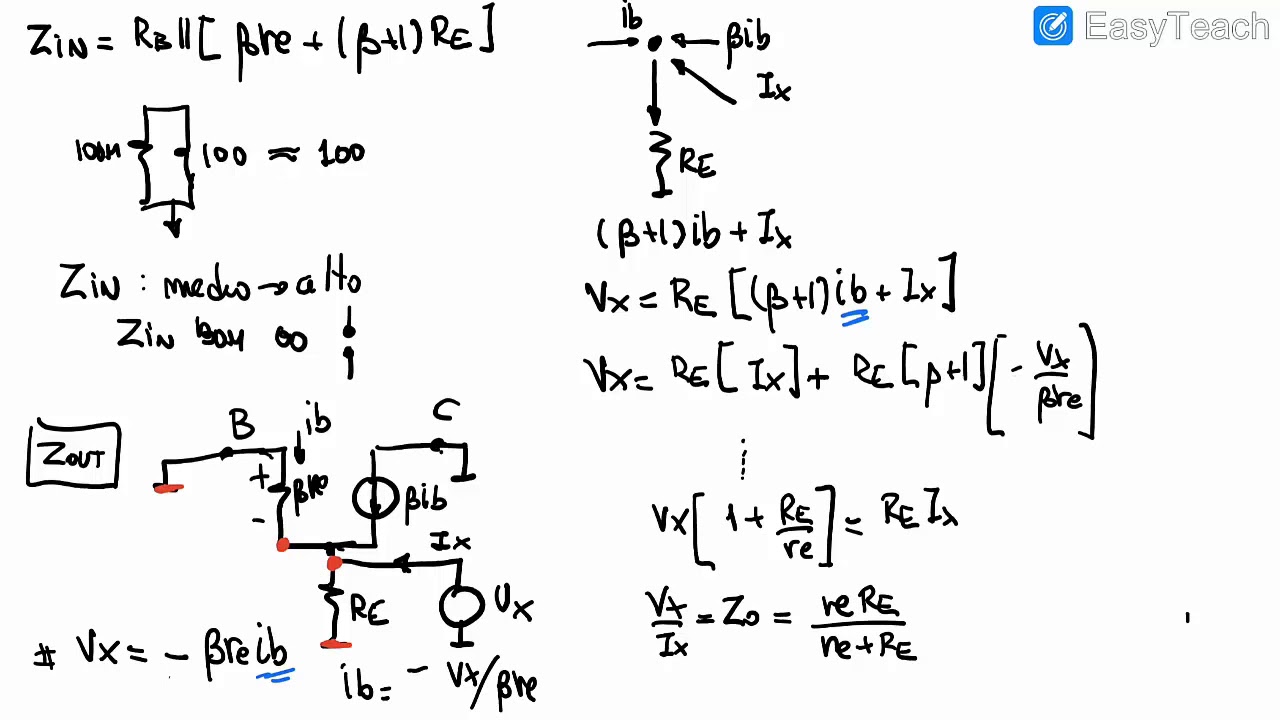 EasyTeach
ZIN = RB || [ βre + (β+1) RE ]
100M 100 ≈ 100
ZIN : medio → alto
ZIN BOM ∞
ZOUT
B ib C
+ βre - βib
Ix
RE Vx
# Vx = - βre ib
ib = - Vx/βre
ib βib
Ix
RE
(β+1)ib + Ix
Vx = RE [(β+1)ib + Ix]
Vx = RE[ Ix] + RE [β+1] [- Vx/βre]
Vx [1 + RE/re] = RE Ix
Vx/Ix = Zo = re RE / re + RE